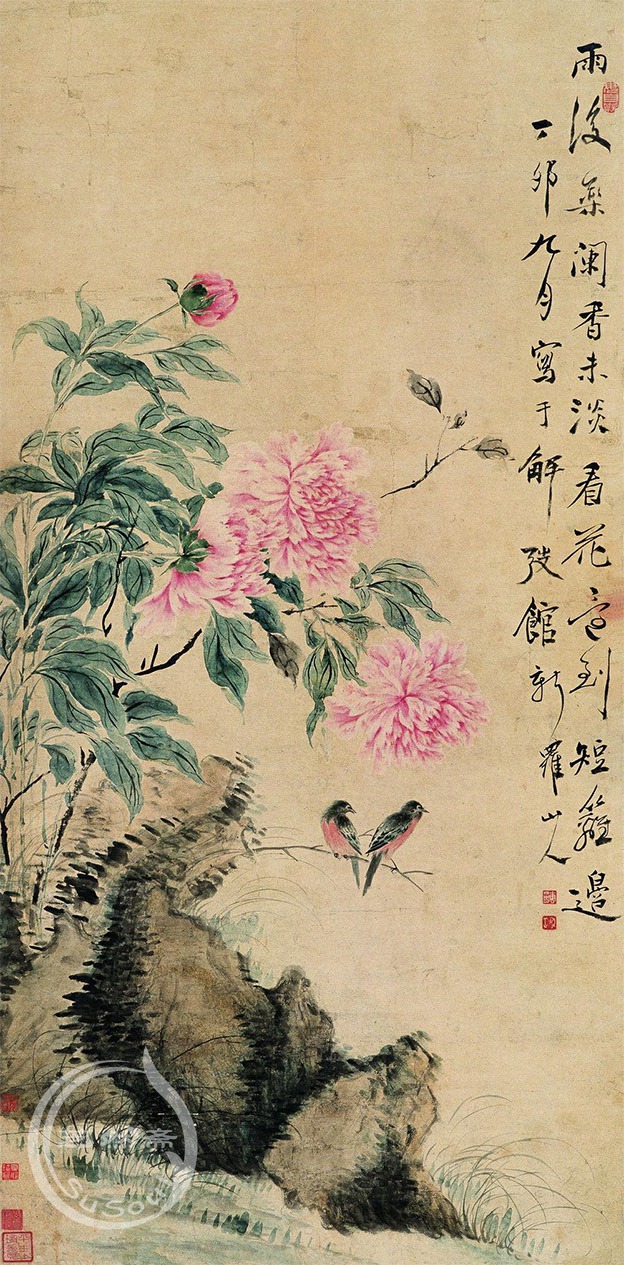 雨後藥闌香未淡看花到短籬邊
丁卯九月寫于解弢館新羅山人